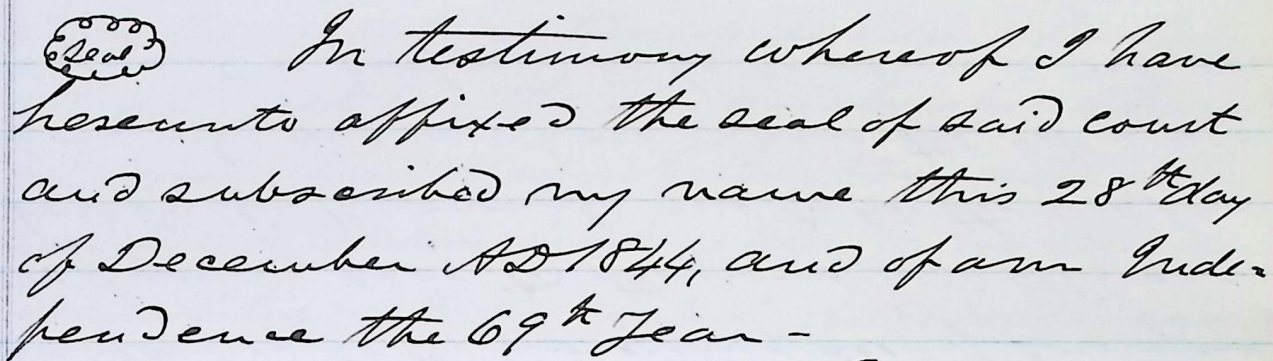 Seal In testimony whereof I have
hereunto affixed the seal of said court
and subscribed my name this 28th day
of December AD 1844, and of our Inde=
pendence the 69th Year -